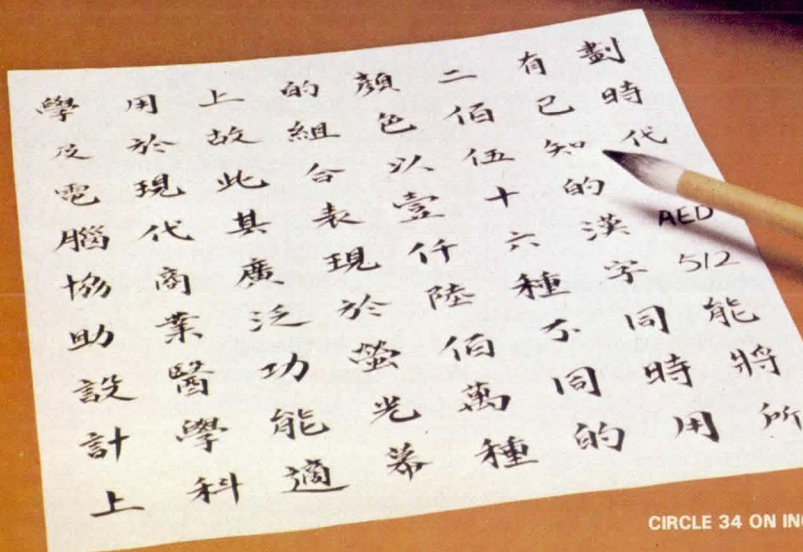 劃時代AED 512能將所
有已知的漢字同時用
二佰伍十六種不同的
顏色以壹仟陸佰萬種
的組合表現於螢光幕
上故此其廣泛功能適
用於現代商業醫學科
學及電腦協助設計上
CIRCLE 34 ON